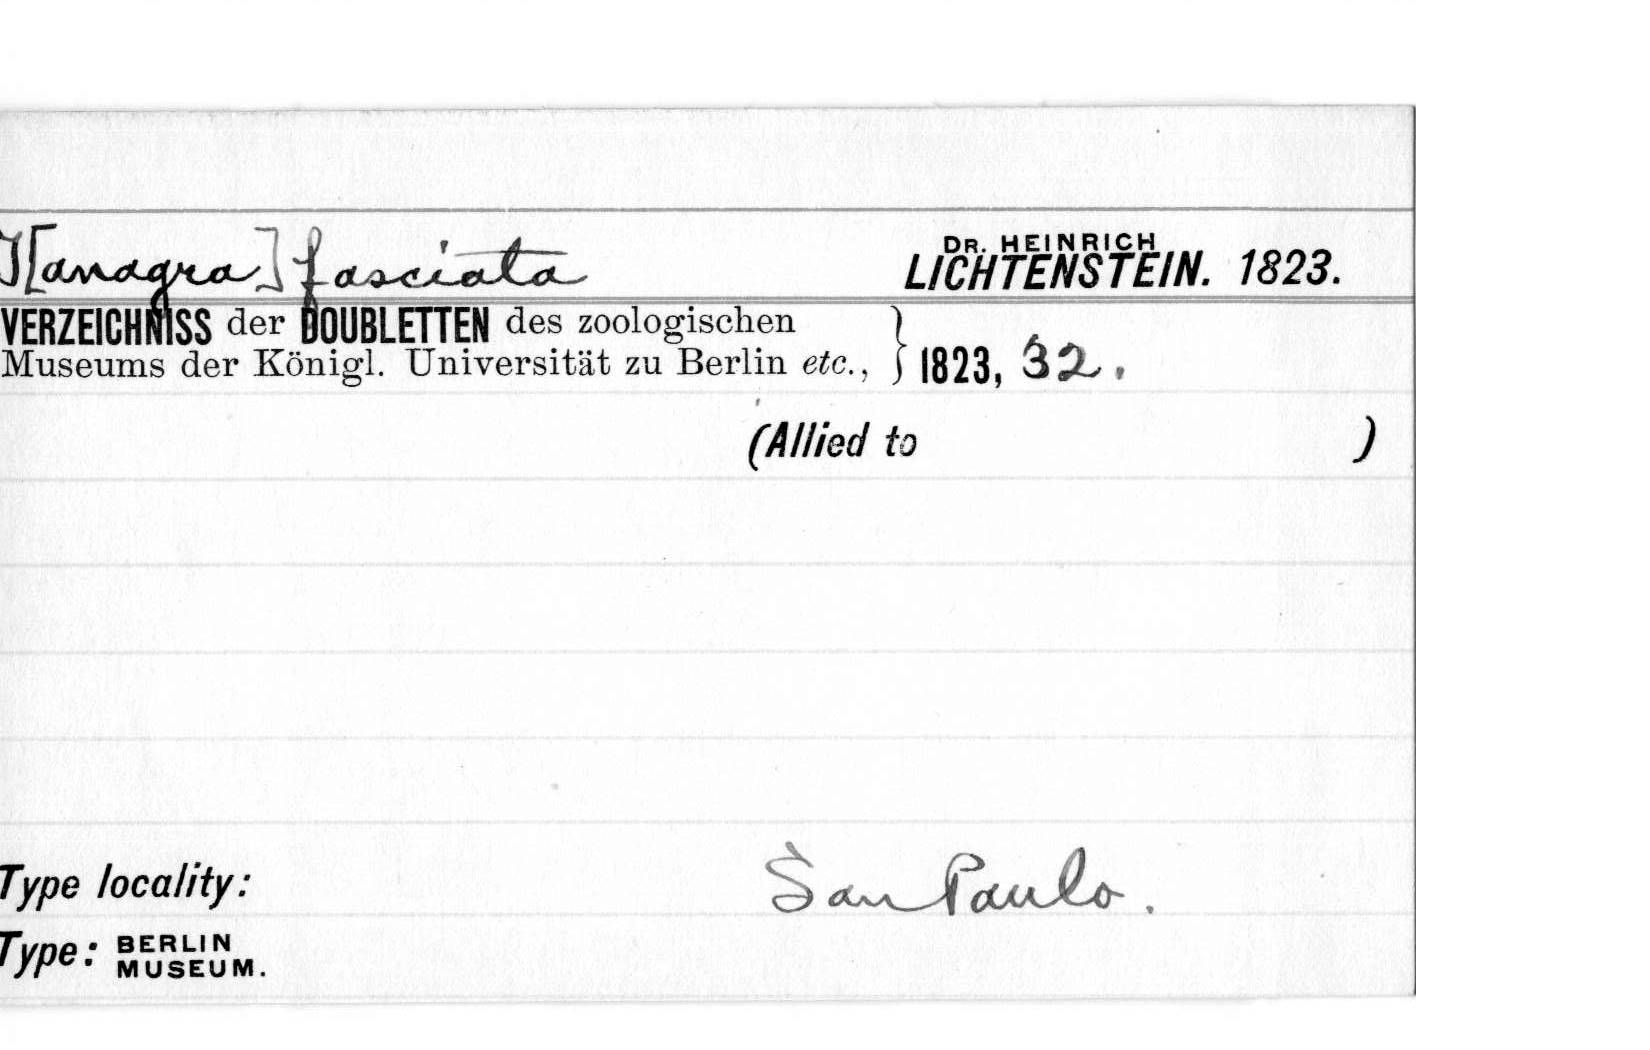 T[anagra] fasciata DR. HEINRICH LICHTENSTEIN. 1823.
VERZEICHNISS der DOUBLETTEN des zoologischen
Museums der Königl. Universität zu Berlin etc., } 1823, 32.
(Allied to )
Type locality: San Paulo.
Type: BERLIN MUSEUM.